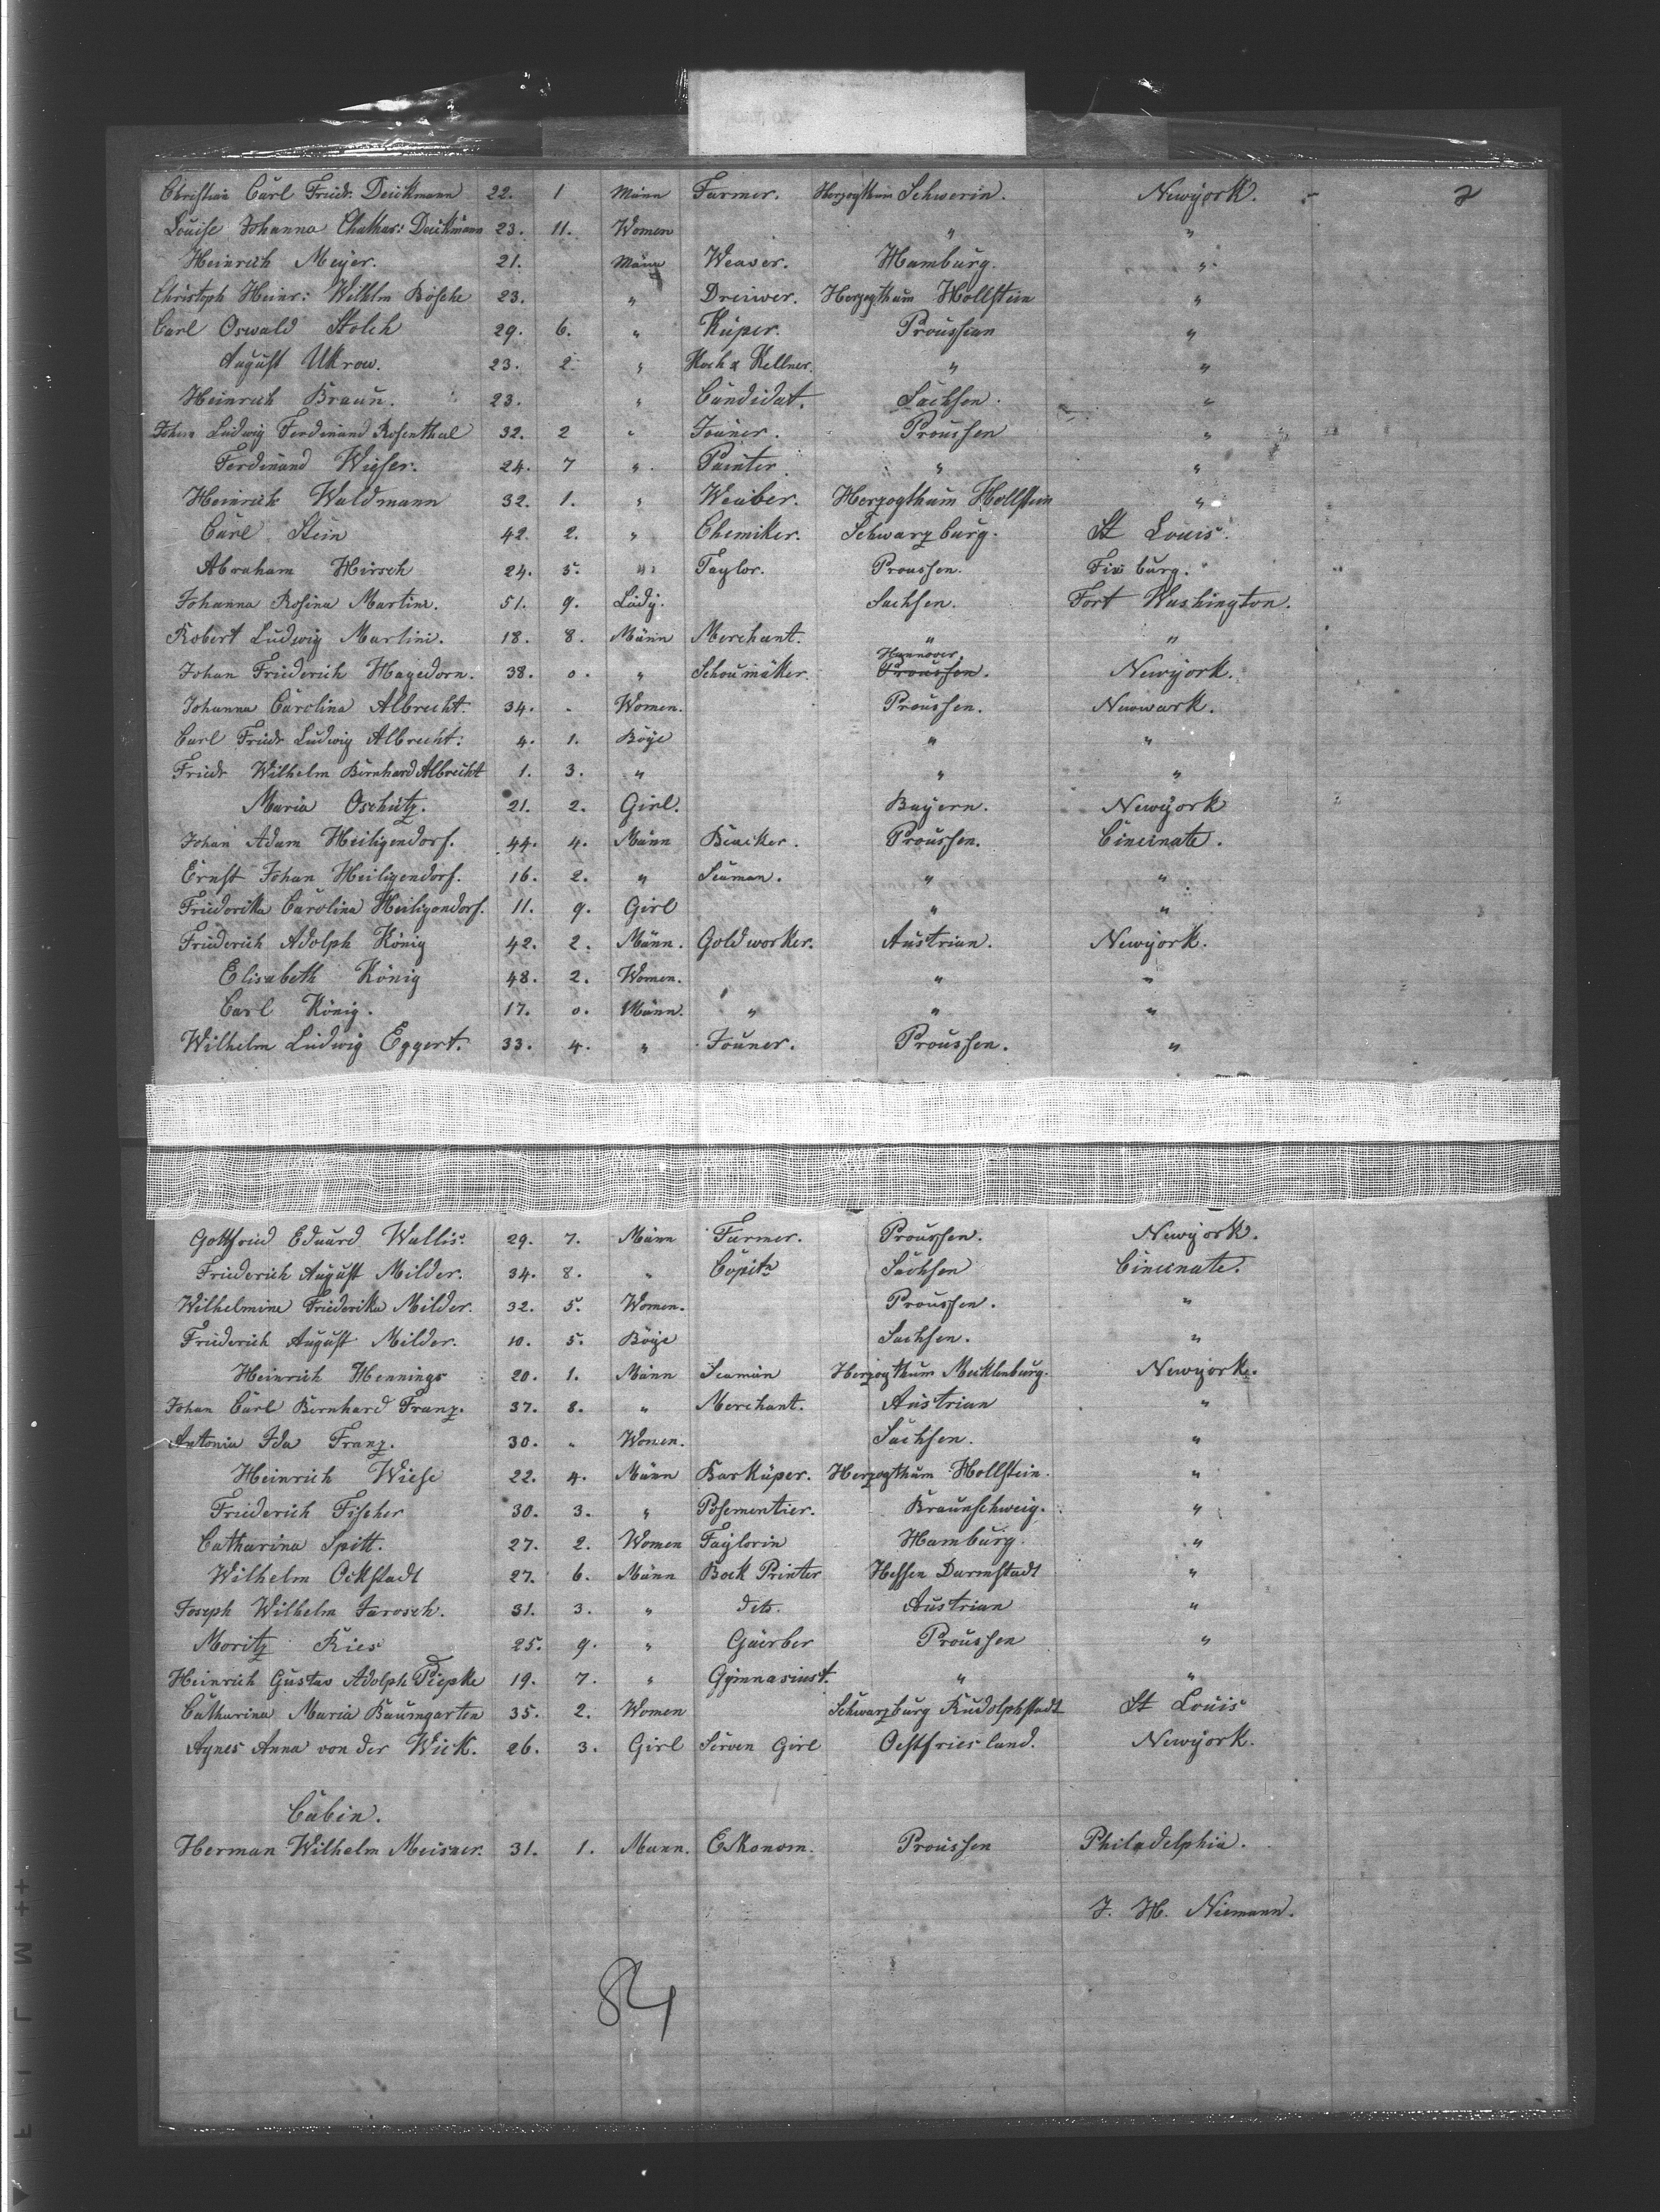 Christian Carl Friedr. Deickmann 22. 1 Männ Farmer. Herzogthum Schwerin. Newyork. 2
Louise Johanna Chathar: Deickmann 23. 11. Women " "
Heinrich Meyer. 21. Männ Weaver. Hamburg. "
Christoph Heinr: Wilhlm Bösche 23. " Dreiwer. Herzogthum Hollstein "
Carl Oswald Stolch 29. 6. " Küper. Proussian "
August Ukrow. 23. 2. " Koch & Kellner. " "
Heinrich Braun. 23. " Candidat. Sachsen. "
Johan Ludwig Ferdinand Rosenthal 32. 2 " Jouner. Proussen "
Ferdinand Wieser. 24. 7 " Painter. " "
Heinrich Waldmann 32. 1. " Weaiber. Herzogthum Hollstein "
Carl Stein 42. 2. " Chemiker. Schwarzburg. St Louis.
Abraham Hirsch 24. 5. " Taylor. Proussen. Fix burg.
Johanna Rosina Martini. 51. 9. Lady. Sachsen. Fort Washington.
Robert Ludwig Martini. 18. 8. Männ Merchant. " "
Johan Friederich Hagedorn. 38. 0. " Schoumäker. Hannover. Proussen. Newyork.
Johanna Carolina Albrecht. 34. - Women. Proussen. Newwark.
Carl Friedr Ludwig Albrecht. 4. 1. Böye " "
Friedr Wilhelm Bernhard Albrecht 1. 3. " " "
Maria Oschütz. 21. 2. Girl. Bayern. Newyork
Johan Adam Heiligendorf. 44. 4. Männ Beacker. Proussen. Cincinate.
Ernst Johan Heiligendorf. 16. 2. " Seaman. " "
Friederika Carolina Heiligendorf. 11. 9. Girl " "
Friederich Adolph König 42. 2. Männ. Goldworker. Austrian. Newyork.
Elisabeth König 48. 2. Women. " "
Carl König. 17. 0. Männ. " " "
Wilhelm Ludwig Eggert. 33. 4. " Jouner. Proussen. "
Gottfried Eduard Wallis. 29. 7. Männ Farmer. Proussen. Newyork.
Friederich August Milder. 34. 8. " Copitn Sachsen Cincinate.
Wilhelmine Friederika Milder. 32. 5. Women. Proussen. "
Friederich August Milder. 10. 5. Böye Sachsen. "
Heinrich Hennings 20. 1. Männ Seaman Herzogthum Mecklenburg. Newyork.
Johan Carl Bernhard Franz. 37. 8. " Merchant. Austrian "
Antonia Ida Franz. 30. " Women. Sachsen. "
Heinrich Wiese 22. 4. Männ Barküper. Herzogthum Hollstein. "
Friederich Fischer 30. 3. " Posementier. Braunschweig. "
Catharina Spitt. 27. 2. Women Taylorin Hamburg. "
Wilhelm Ockstadt 27. 6. Männ Bock Printer Hessen Darmstadt "
Joseph Wilhelm Jarosch. 31. 3. " dito. Austrian "
Moritz Ries 25. 9. " Gäerber Proussen "
Heinrich Gustav Adolph Piepke 19. 7. " Gymnasiast. " "
Catharina Maria Baumgarten 35. 2. Women Schwarzburg Rudolphstadt St Louis
Agnes Anna von der Wick. 26. 3. Girl Serven Girl Ostfriesland. Newyork.
Cabin.
Herman Wilhelm Meisner. 31. 1. Mann. Eckonom. Proussen Philadelphia.
J. H. Niemann.
84